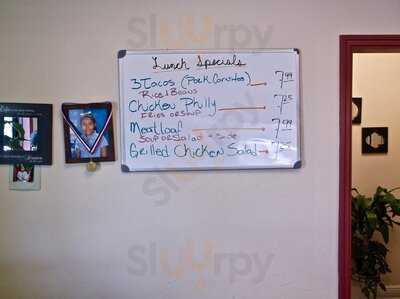 Lunch Specials
3 Tacos (Pork Carnitas) → 7.99
Rice & Beans
Chicken Philly → 7.25
Fries or Soup
Meatloaf → 7.99
Soup or Salad + Side
Grilled Chicken Salad →
Slurpy
Slurpy
Slurpy